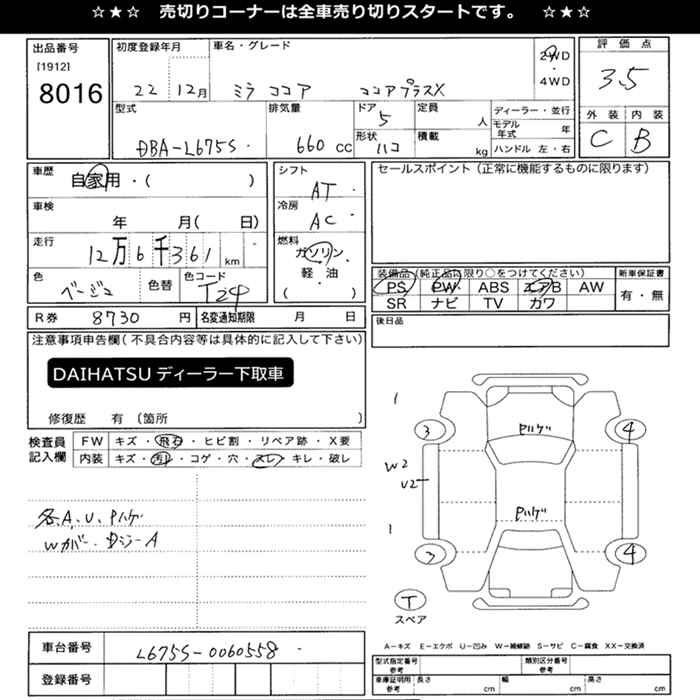 ☆★☆ 売切りコーナーは全車売り切りスタートです。 ☆★☆
出品番号
[1912]
8016
初度登録年月
22 12月
車名・グレード
ミラ ココア ココアプラスX
2WD
4WD
評価点
3.5
外装 内装
C B
型式
DBA-L675S
排気量
660 cc
ドア
5
形状
ハコ
定員
人
積載
kg
ディーラー・並行
モデル年式 年
ハンドル 左・右
車歴
自家用・( )
車検
年 月( 日)
走行
12万6千361 km
色
ベージュ
色替
色コード
T24
シフト
AT
冷房
AC
燃料
ガソリン
軽・油
( )
セールスポイント(正常に機能するものに限ります)
装備品(純正品に限り○をつけてください)
PS PW ABS エアB AW
SR ナビ TV カワ
新車保証書
有・無
R券 8730 円
名変通知期限 月 日
後日品
注意事項申告欄(不具合内容等は具体的に記入して下さい)
DAIHATSU ディーラー下取車
修復歴 有 (箇所 )
検査員記入欄
FW キズ・飛石・ヒビ割・リペア跡・X要
内装 キズ・汚れ・コゲ・穴・スレ・キレ・破レ
各A、U、Pハゲ
Wカバー、DジーA
1
3
4
Pハゲ
W2
U2
Pハゲ
1
3
4
T
スペア
車台番号
L675S-0060558
登録番号
A-キズ E-エクボ U-凹み W-補修跡 S-サビ C-腐食 XX-交換済
型式指定番号 参考
類別区分番号 参考
車庫証明用 参考
長さ cm
幅 cm
高さ cm